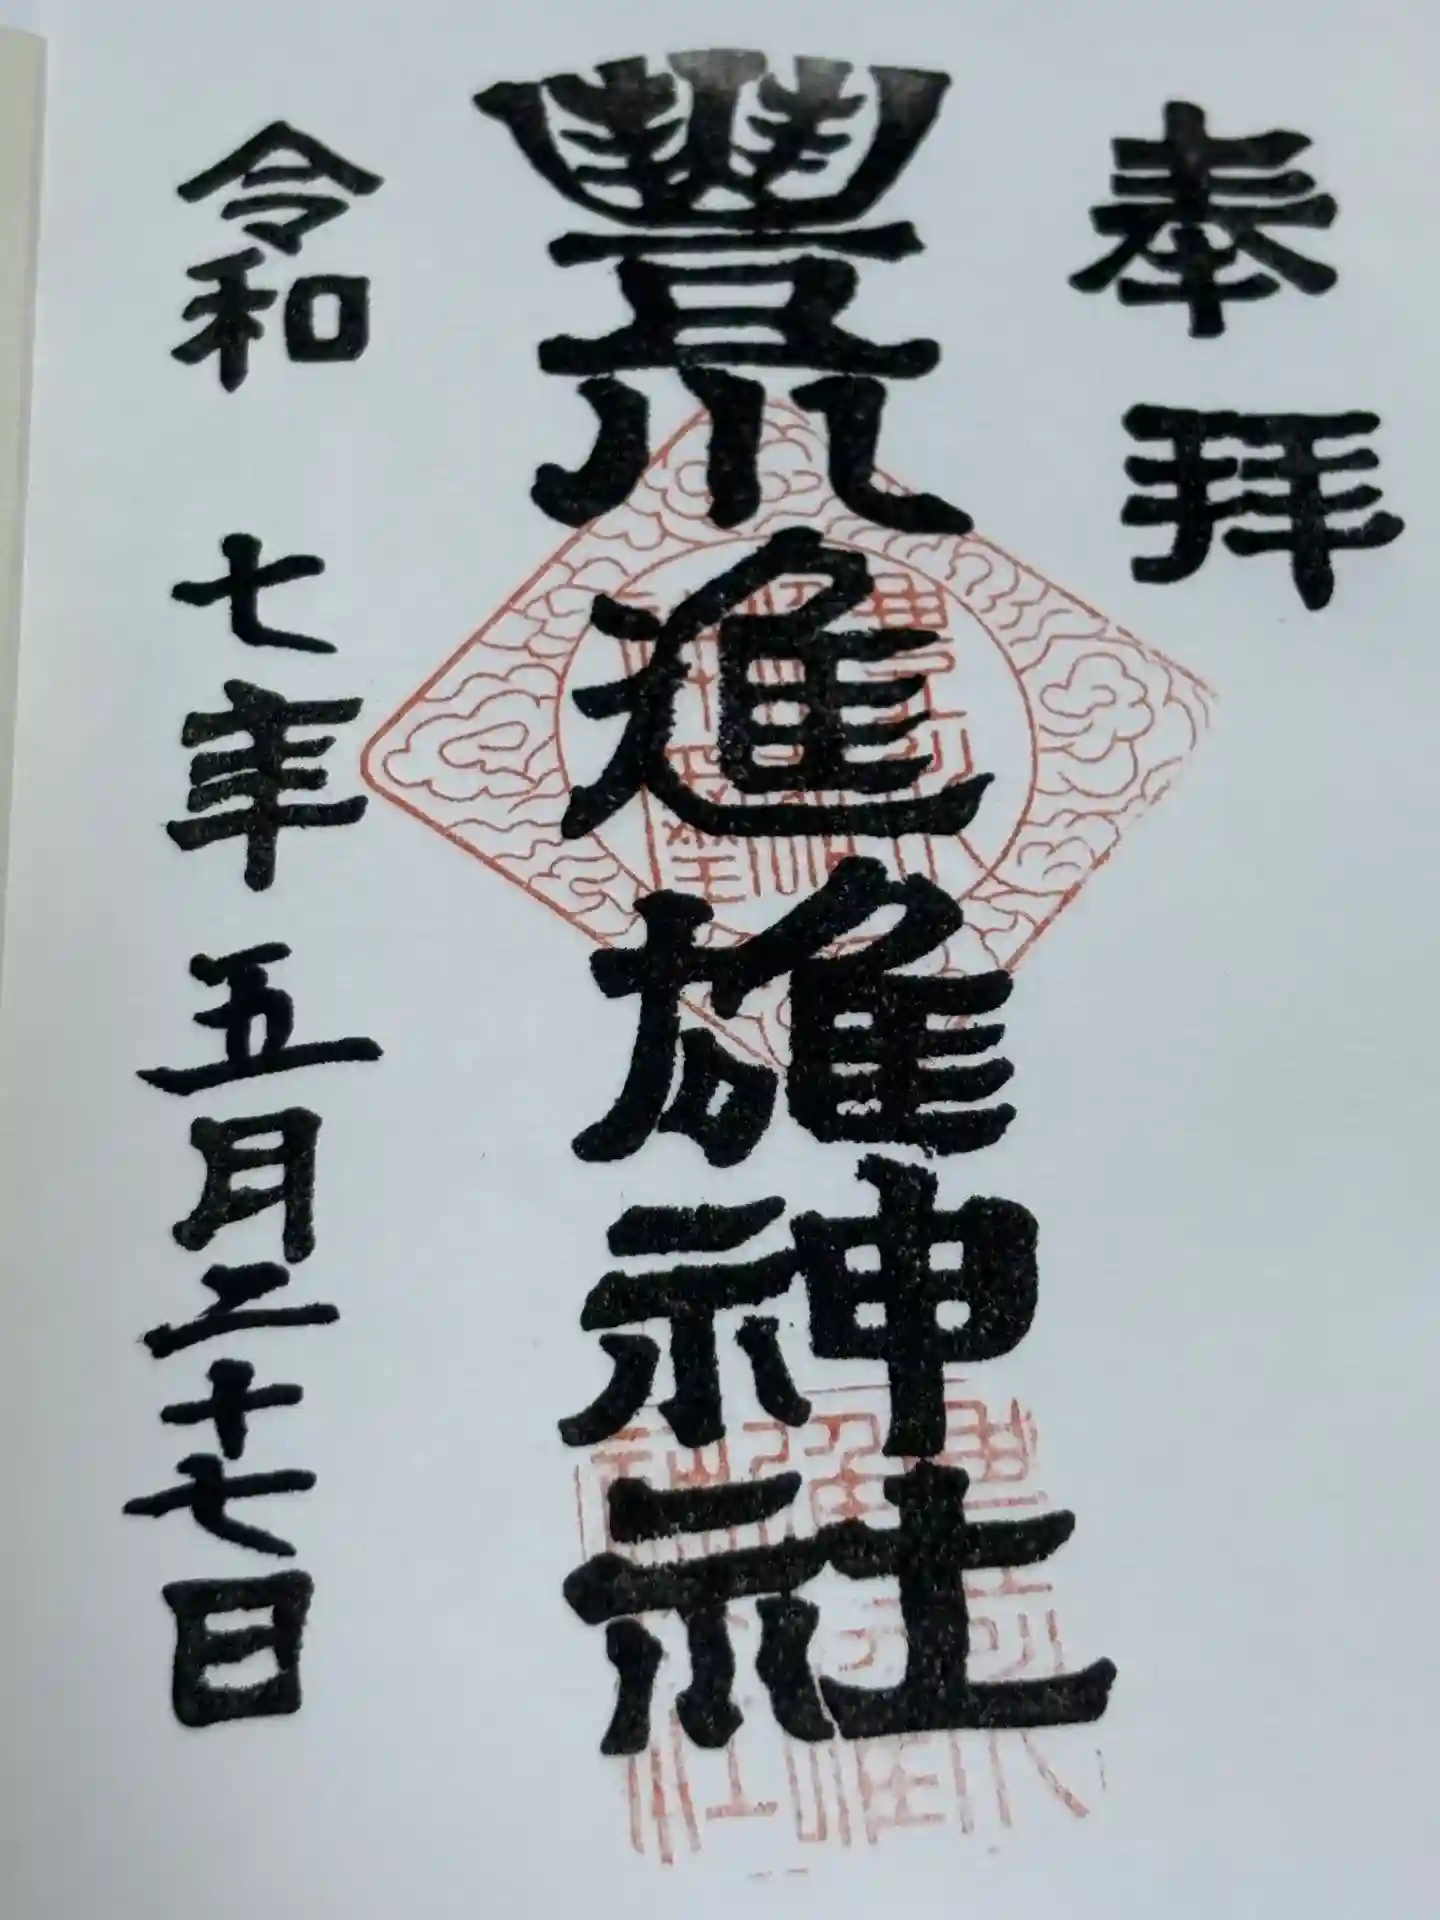 奉拝
豐川進雄神社
令和七年五月二十七日